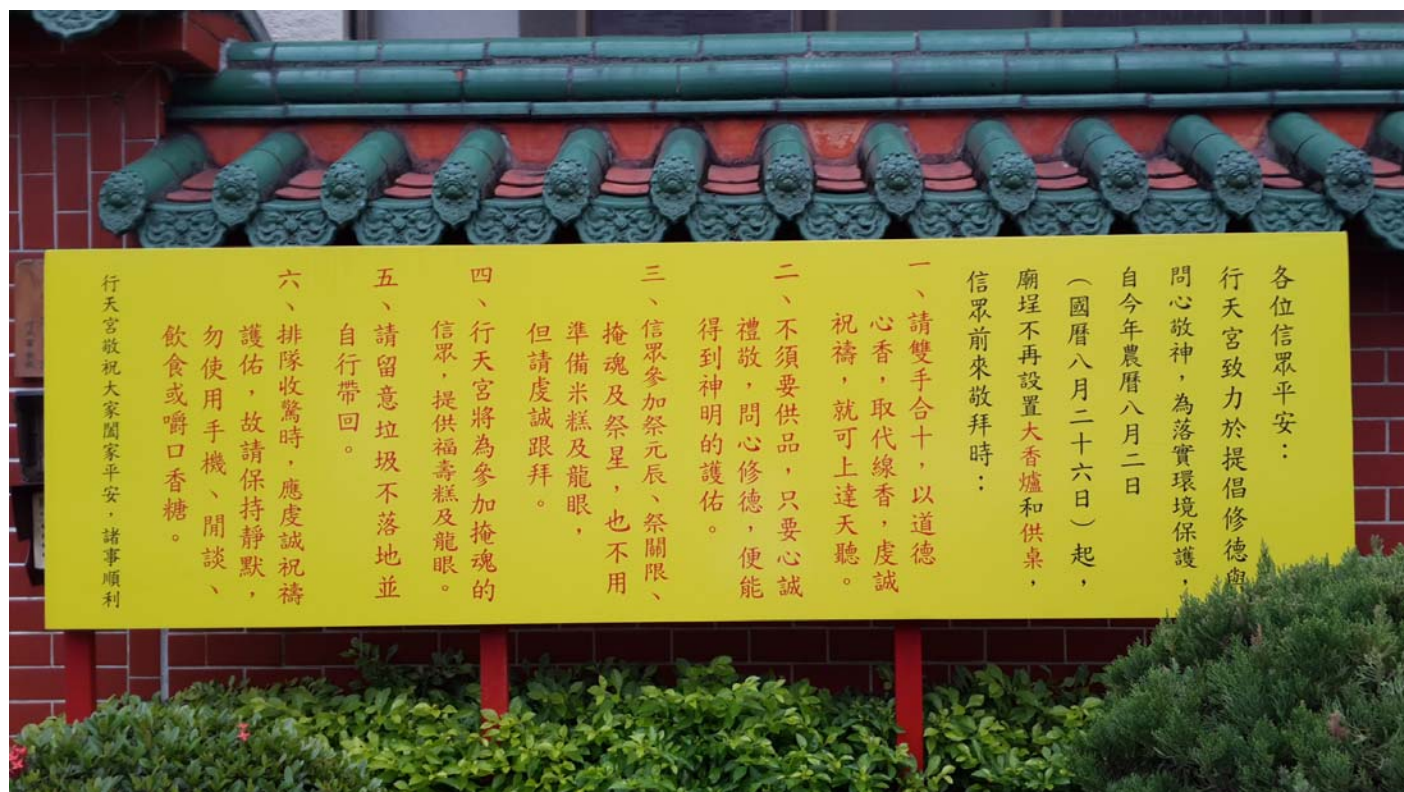 各位信眾平安：
行天宮致力於提倡修德與
問心敬神，為落實環境保護，
自今年農曆八月二日
（國曆八月二十六日）起，
廟埕不再設置大香爐和供桌，
信眾前來敬拜時：
一、請雙手合十，以道德
心香，取代線香，虔誠
祝禱，就可上達天聽。
二、不須要供品，只要心誠
禮敬，問心修德，便能
得到神明的護佑。
三、信眾參加祭元辰、祭關限、
掩魂及祭星，也不用
準備米糕及龍眼，
但請虔誠跟拜。
四、行天宮將為參加掩魂的
信眾，提供福壽糕及龍眼。
五、請留意垃圾不落地並
自行帶回。
六、排隊收驚時，應虔誠祝禱
護佑，故請保持靜默，
勿使用手機、閒談、
飲食或嚼口香糖。
行天宮敬祝大家闔家平安，諸事順利